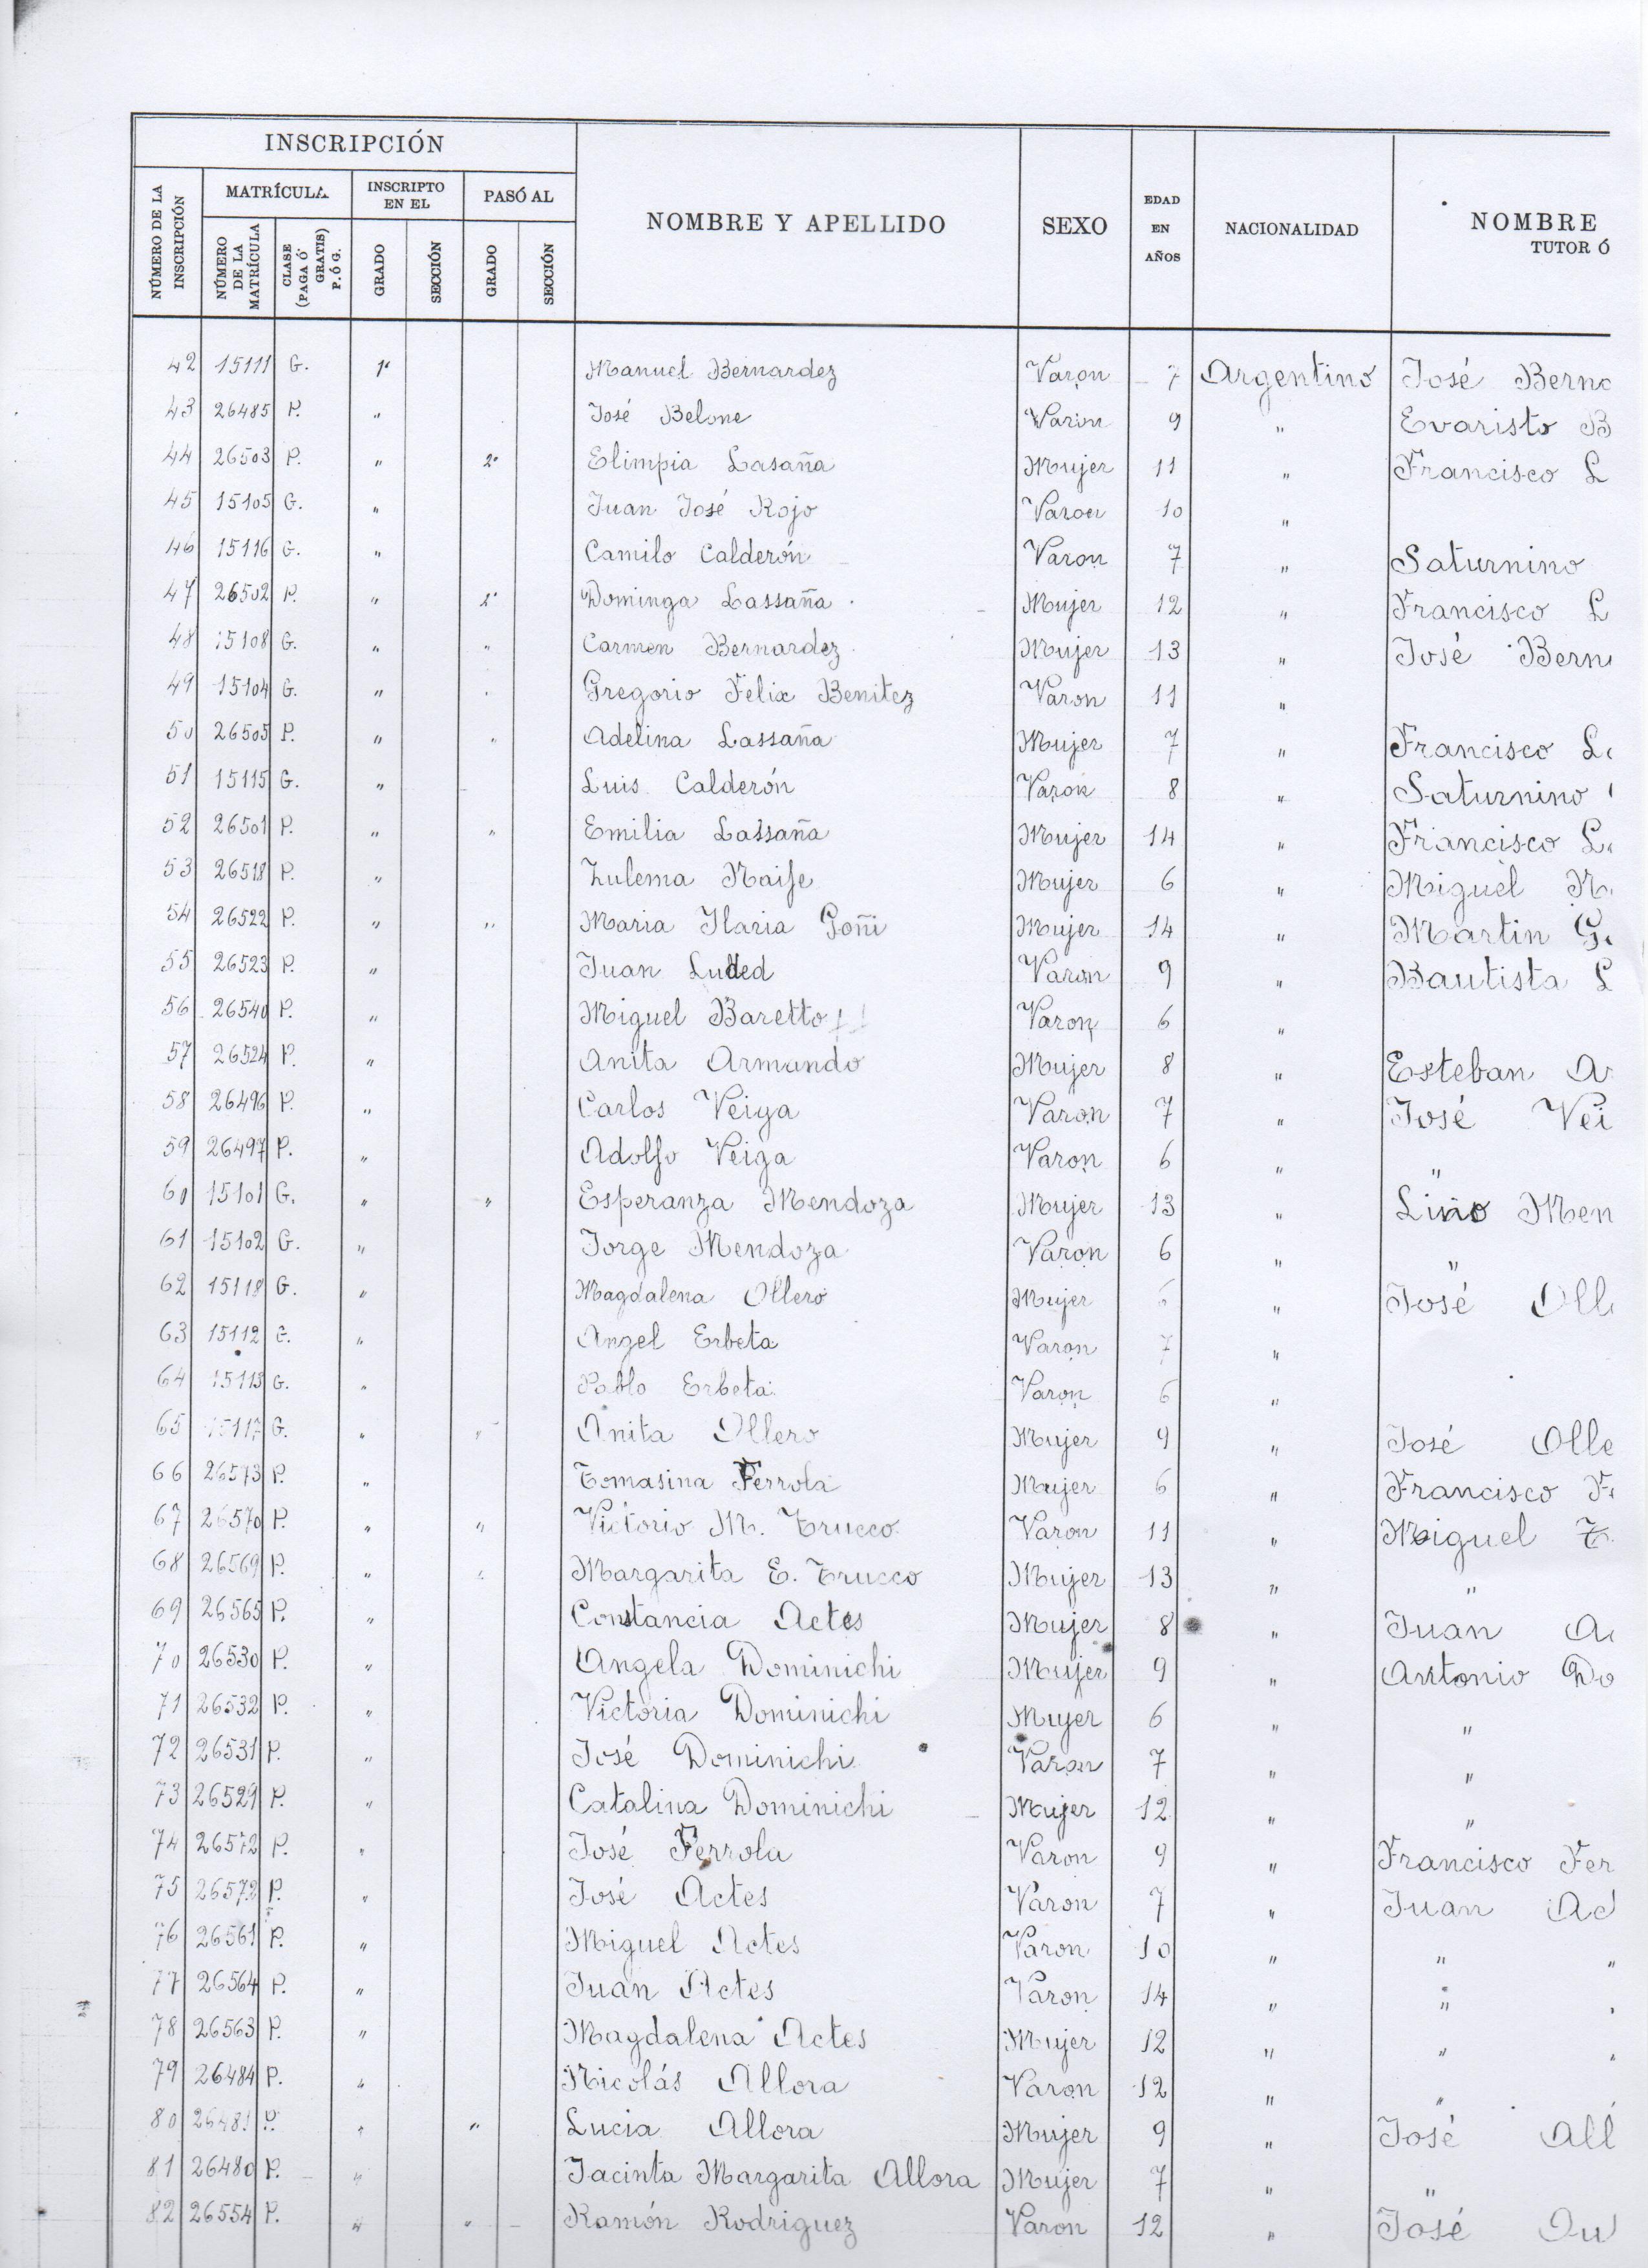 INSCRIPCIÓN
NÚMERO DE LA INSCRIPCIÓN
MATRÍCULA
INSCRIPTO EN EL
PASÓ AL
NÚMERO DE LA MATRÍCULA
CLASE (PAGA Ó GRATIS) P. Ó G.
GRADO
SECCIÓN
GRADO
SECCIÓN
NOMBRE Y APELLIDO
SEXO
EDAD EN AÑOS
NACIONALIDAD
NOMBRE
TUTOR Ó
42 15111 G. 1º Manuel Bernardez Varon 7 Argentino José Berna
43 26485 P. " José Belone Varon 9 " Evaristo B
44 26503 P. " 2º Elimpia Lasaña Mujer 11 " Francisco L
45 15105 G. " Juan José Rojo Varon 10 "
46 15116 G. " Camilo Calderón Varon 7 " Saturnino
47 26502 P. " 2º Dominga Lassaña Mujer 12 " Francisco L
48 15108 G. " " Carmen Bernardez Mujer 13 " José Bern
49 15104 G. " " Gregorio Felix Benitez Varon 11 "
50 26505 P. " " Adelina Lassaña Mujer 7 " Francisco La
51 15115 G. " Luis Calderón Varon 8 " Saturnino
52 26501 P. " " Emilia Lassaña Mujer 14 " Francisco La
53 26518 P. " Zulema Naife Mujer 6 " Miguel N
54 26522 P. " " Maria Ilaria Goñi Mujer 14 " Martin G
55 26523 P. " Juan Luded Varon 9 " Bautista L
56 26540 P. " Miguel Baretto Varon 6 "
57 26524 P. " Anita Armando Mujer 8 " Esteban Ar
58 26496 P. " Carlos Veiga Varon 7 " José Vei
59 26497 P. " Adolfo Veiga Varon 6 " "
60 15101 G. " " Esperanza Mendoza Mujer 13 " Lino Men
61 15102 G. " Jorge Mendoza Varon 6 " "
62 15118 G. " Magdalena Ollero Mujer 6 " José Oll
63 15112 G. " Angel Erbeta Varon 7 "
64 15113 G. " Pablo Erbeta Varon 6 "
65 15117 G. " " Anita Ollero Mujer 9 " José Olle
66 26573 P. " Tomasina Ferrola Mujer 6 " Francisco Fe
67 26570 P. " " Victorio M. Trucco Varon 11 " Miguel T
68 26569 P. " " Margarita E. Trucco Mujer 13 " "
69 26565 P. " Constancia Actes Mujer 8 " Juan Ac
70 26530 P. " Angela Dominichi Mujer 9 " Antonio Do
71 26532 P. " Victoria Dominichi Mujer 6 " "
72 26531 P. " José Dominichi Varon 7 " "
73 26529 P. " Catalina Dominichi Mujer 12 " "
74 26572 P. " José Ferrola Varon 9 " Francisco Fer
75 26572 P. " José Actes Varon 7 " Juan Act
76 26561 P. " Miguel Actes Varon 10 " " "
77 26564 P. " Juan Actes Varon 14 " "
78 26563 P. " Magdalena Actes Mujer 12 " "
79 26484 P. " Nicolás Allora Varon 12 " "
80 26481 P. " " Lucia Allora Mujer 9 " José All
81 26480 P. " Jacinta Margarita Allora Mujer 7 " "
82 26554 P. " " Ramón Rodriguez Varon 12 " José